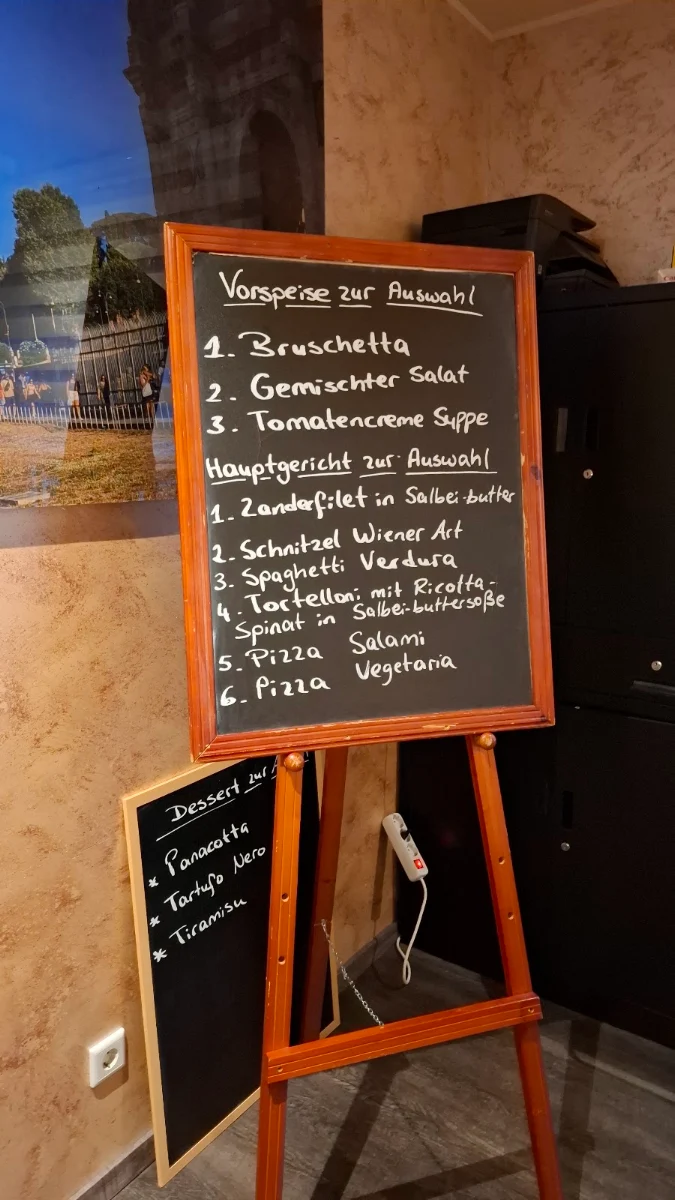 Vorspeise zur Auswahl
1. Bruschetta
2. Gemischter Salat
3. Tomatencreme Suppe
Hauptgericht zur Auswahl
1. Zanderfilet in Salbei-butter
2. Schnitzel Wiener Art
3. Spaghetti Verdura
4. Tortelloni mit Ricotta-
Spinat in Salbei-buttersoße
5. Pizza Salami
6. Pizza Vegetaria
Dessert zur A
* Panacotta
* Tartufo Nero
* Tiramisu